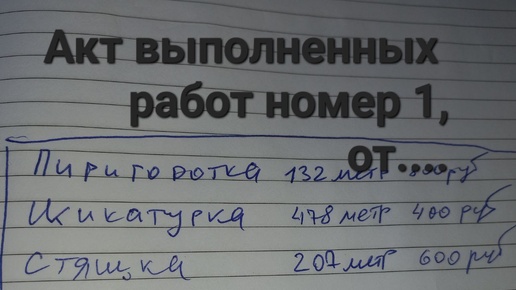 Акт выполненных
работ номер 1,
от....
Пиригоротка 132 метр 800 руб
Шикатурка 478 метр 400 руб
Стяшка 207 метр 600 руб